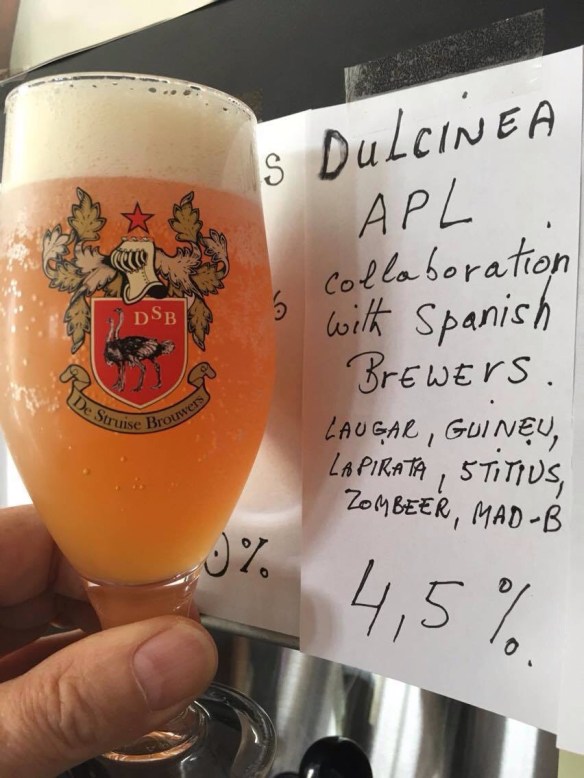 DSB
De Struise Brouwers
S
%
0%
DULCINEA
APL
collaboration
with Spanish
BREWERS.
LAUGAR, GUINEU,
LAPIRATA, 5TITIUS,
ZOMBEER, MAD-B
4,5%.